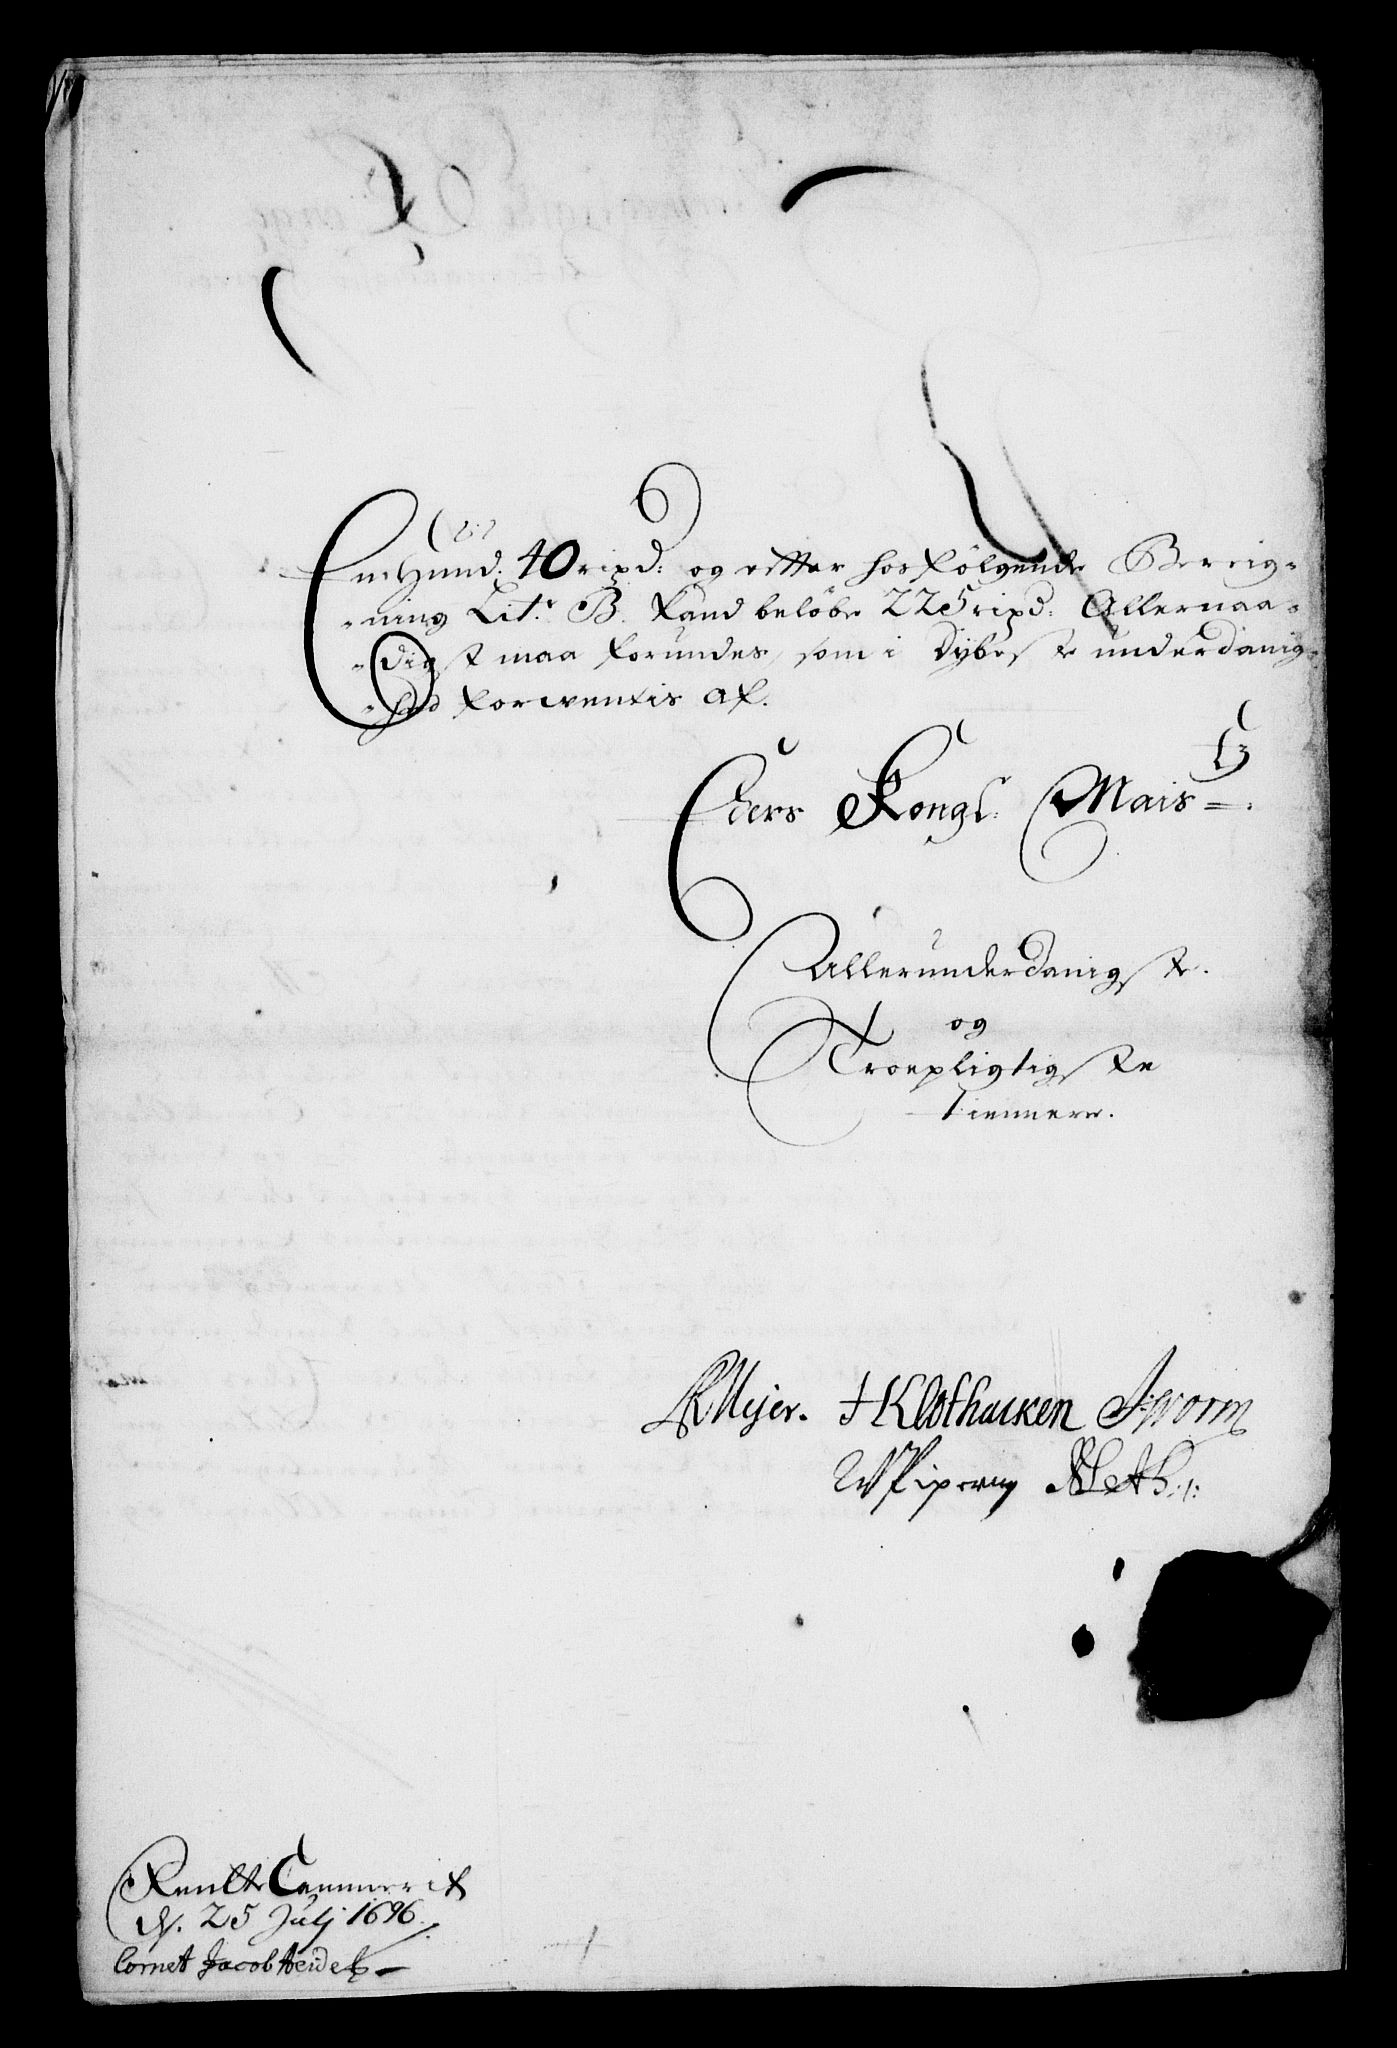 En Hund: 40 rixd: og efter hosfølgende Bereig¬
¬ning Lit.r B. kand beløbe 225 rixd: Allernaa¬
¬digst maa forundes, som i dybeste underdanig¬
¬hed forventis af.
Eders Kongl: Maists:
Allerunderdanigste
og
Troepligtigste
tiennere.
Meÿer. HKlothacken Jworm
Rendte Cammerit
d. 25 Julj 1696.
Cornet Jacob Heidek